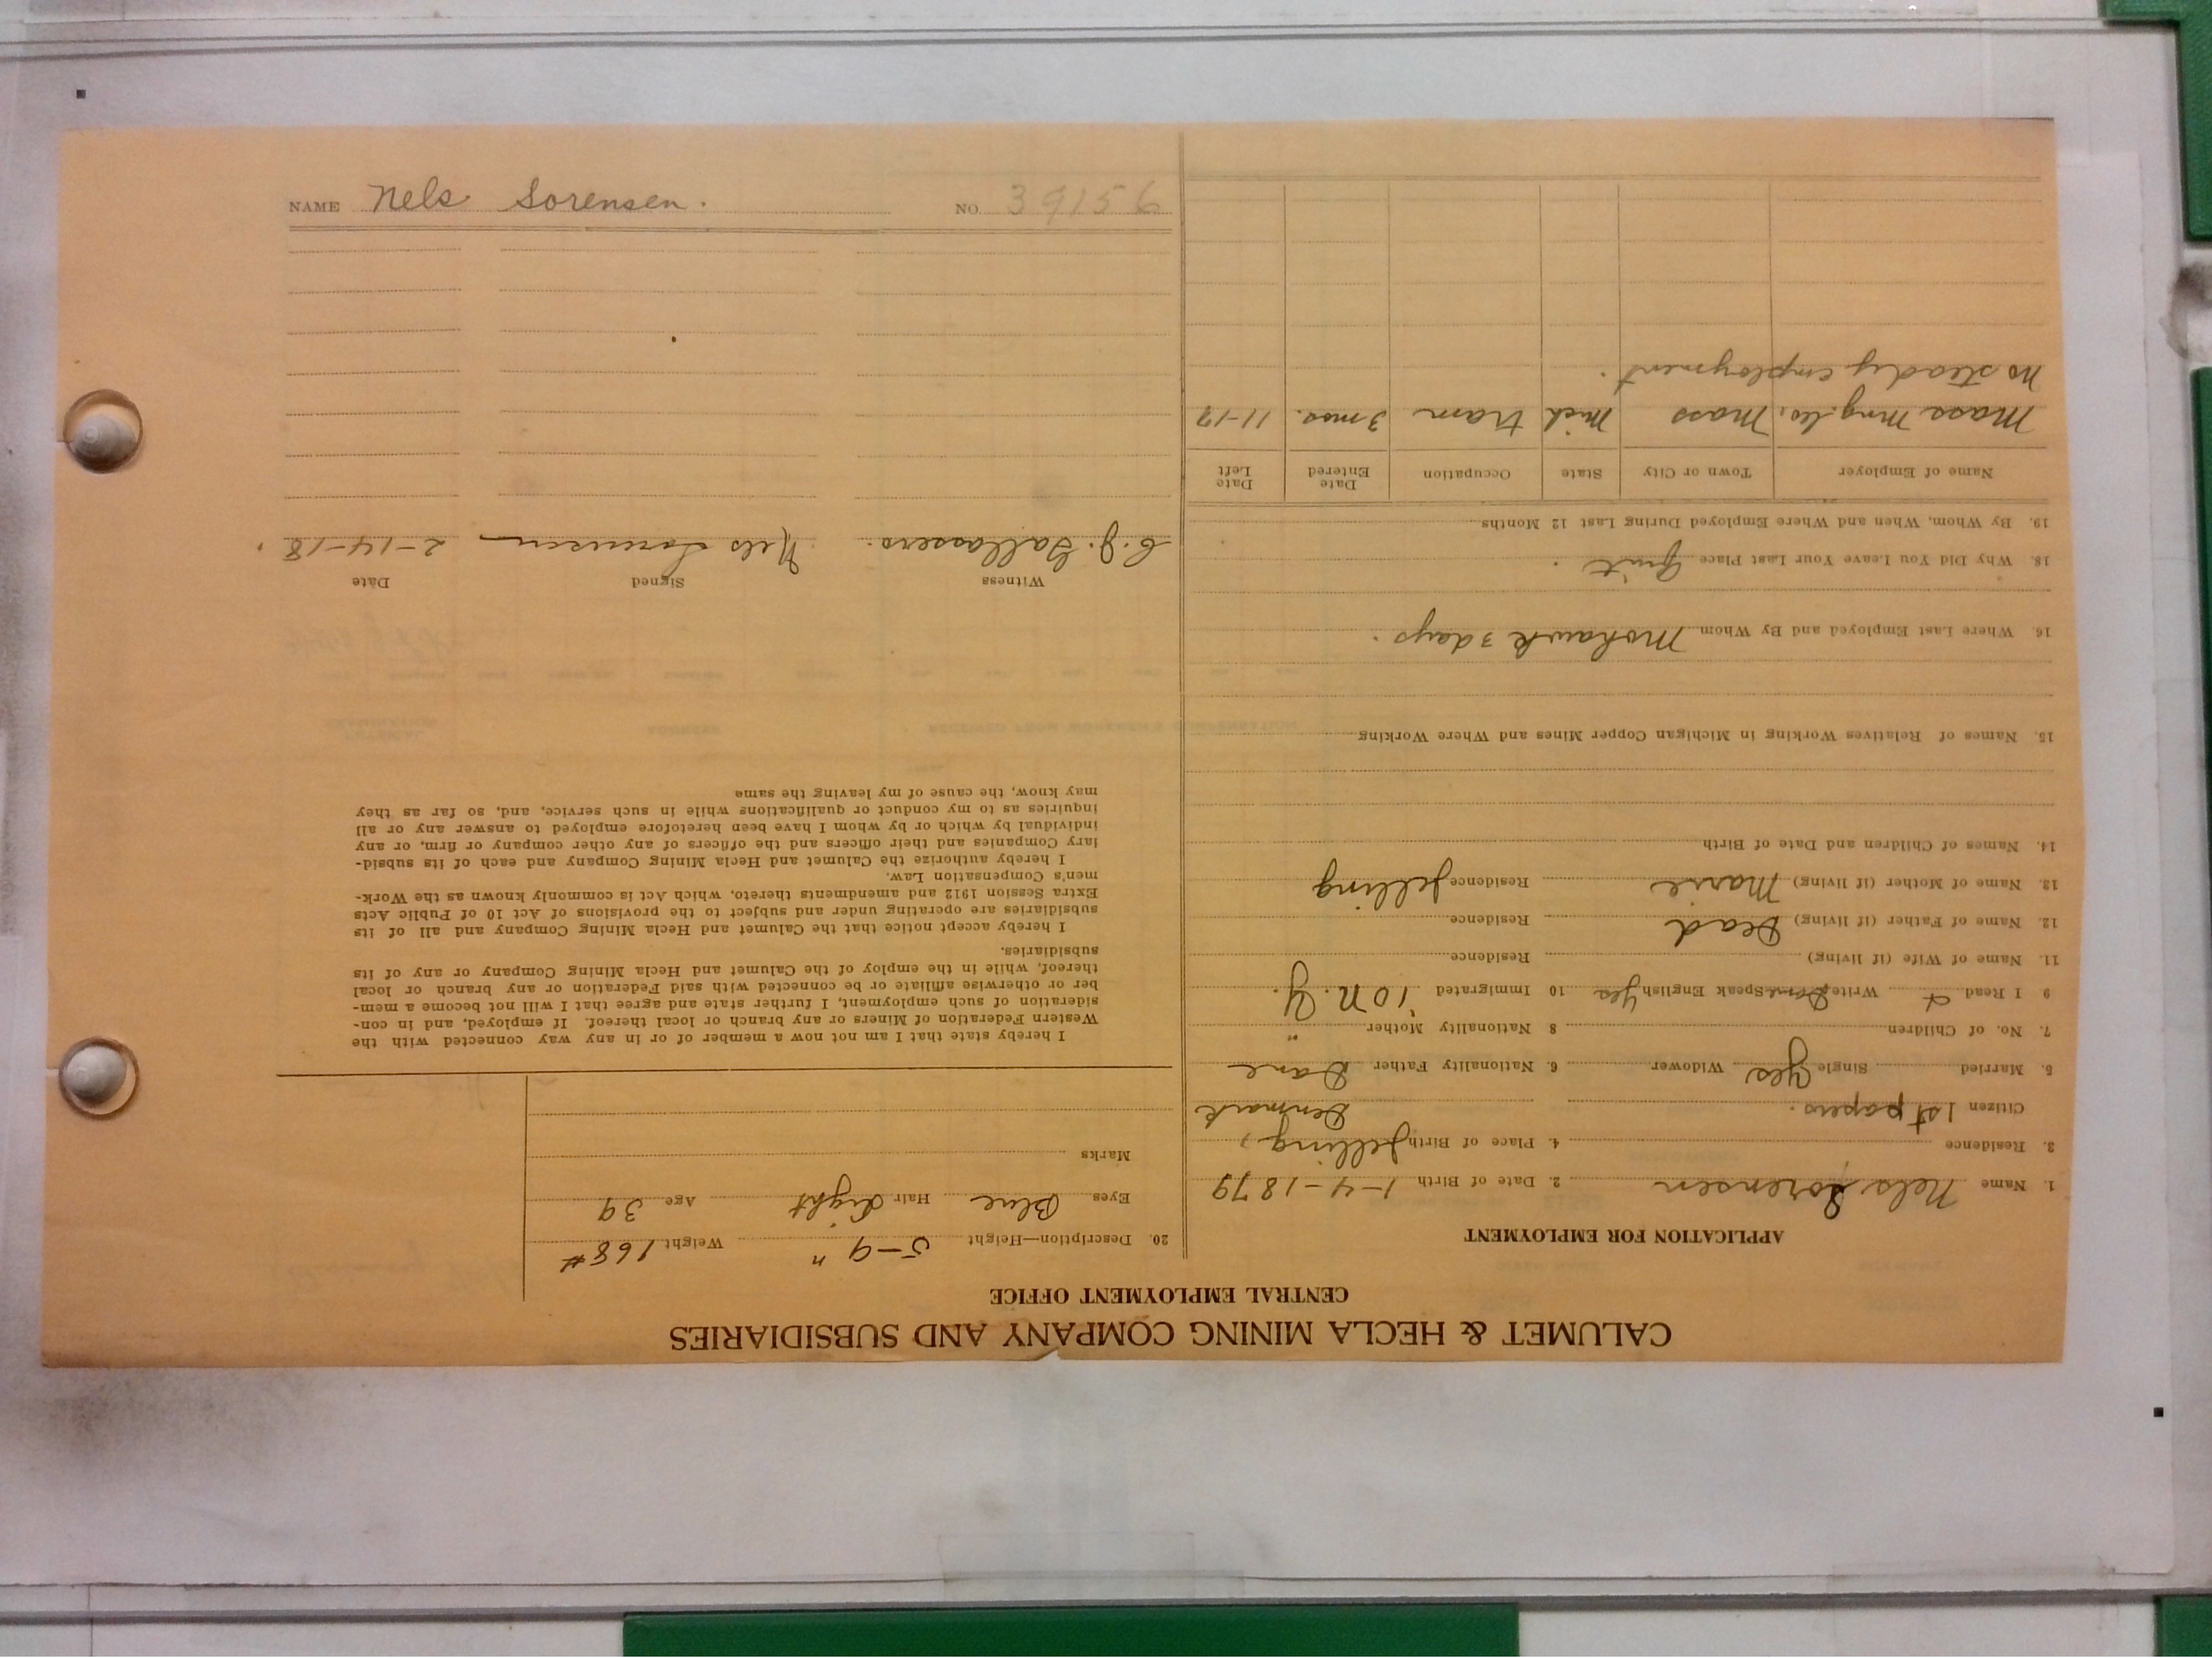 CALUMET & HECLA MINING COMPANY AND SUBSIDIARIES
CENTRAL EMPLOYMENT OFFICE
APPLICATION FOR EMPLOYMENT
1. Name Nels Sorensen 2. Date of Birth 1-4-1879
3. Residence 4. Place of Birth Jelling,
Citizen 1st papers. Denmark
5. Married Single Yes Widower 6. Nationality Father Dane
7. No. of Children 8 Nationality Mother "
9 I Read Write Speak English Yes 10 Immigrated '10 N.Y.
11. Name of Wife (if living) Residence
12. Name of Father (if living) Dead Residence
13. Name of Mother (if living) Marie Residence Jelling
14. Names of Children and Date of Birth
15. Names of Relatives Working in Michigan Copper Mines and Where Working
16. Where Last Employed and By Whom Mohawk 3 days.
18. Why Did You Leave Your Last Place Quit.
19. By Whom, When and Where Employed During Last 12 Months
Name of Employer Town or City State Occupation Date Entered Date Left
Mass Mng. Co. Mass Mich tram 3 mos. 11-17
No steady employment.
20. Description—Height 5-9" Weight 168#
Eyes Blue Hair Light Age 39
Marks
I hereby state that I am not now a member of or in any way connected with the
Western Federation of Miners or any branch or local thereof. If employed, and in con-
sideration of such employment, I further state and agree that I will not become a mem-
ber or otherwise affiliate or be connected with said Federation or any branch or local
thereof, while in the employ of the Calumet and Hecla Mining Company or any of its
subsidiaries.
I hereby accept notice that the Calumet and Hecla Mining Company and all of its
subsidiaries are operating under and subject to the provisions of Act 10 of Public Acts
Extra Session 1912 and amendments thereto, which Act is commonly known as the Work-
men's Compensation Law.
I hereby authorize the Calumet and Hecla Mining Company and each of its subsid-
iary Companies and their officers and the officers of any other company or firm, or any
individual by which or by whom I have been heretofore employed to answer any or all
inquiries as to my conduct or qualifications while in such service, and, so far as they
may know, the cause of my leaving the same
Witness Signed Date
Nels Sorensen 2-14-18.
NAME Nels Sorensen. NO. 39156